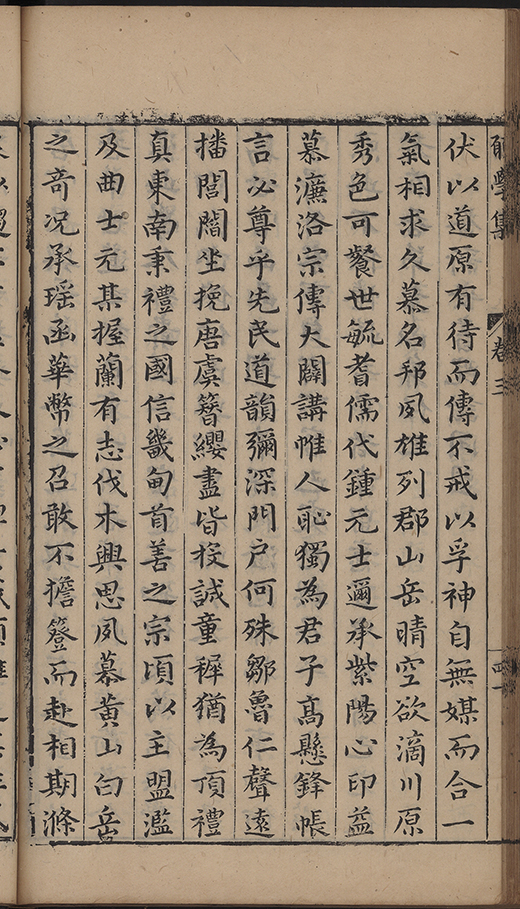 學集 卷三
伏以道原有待而傳不戒以孚神自無媒而合一
氣相求久慕名邦夙雄列郡山岳晴空欲滴川原
秀色可餐世毓耆儒代鍾元士邇承紫陽心印益
慕濂洛宗傳大闢講帷人恥獨為君子高懸鋒帳
言必尊乎先民道韻彌深門戶何殊鄒魯仁聲遠
播閭閻坐挽唐虞簪纓盡皆投誠童穉猶為頂禮
真東南秉禮之國信畿甸首善之宗頃以主盟濫
及曲士元某握蘭有志伐木興思夙慕黃山白嶽
之奇況承瑤函華幣之召敢不擔簦而赴相期滌